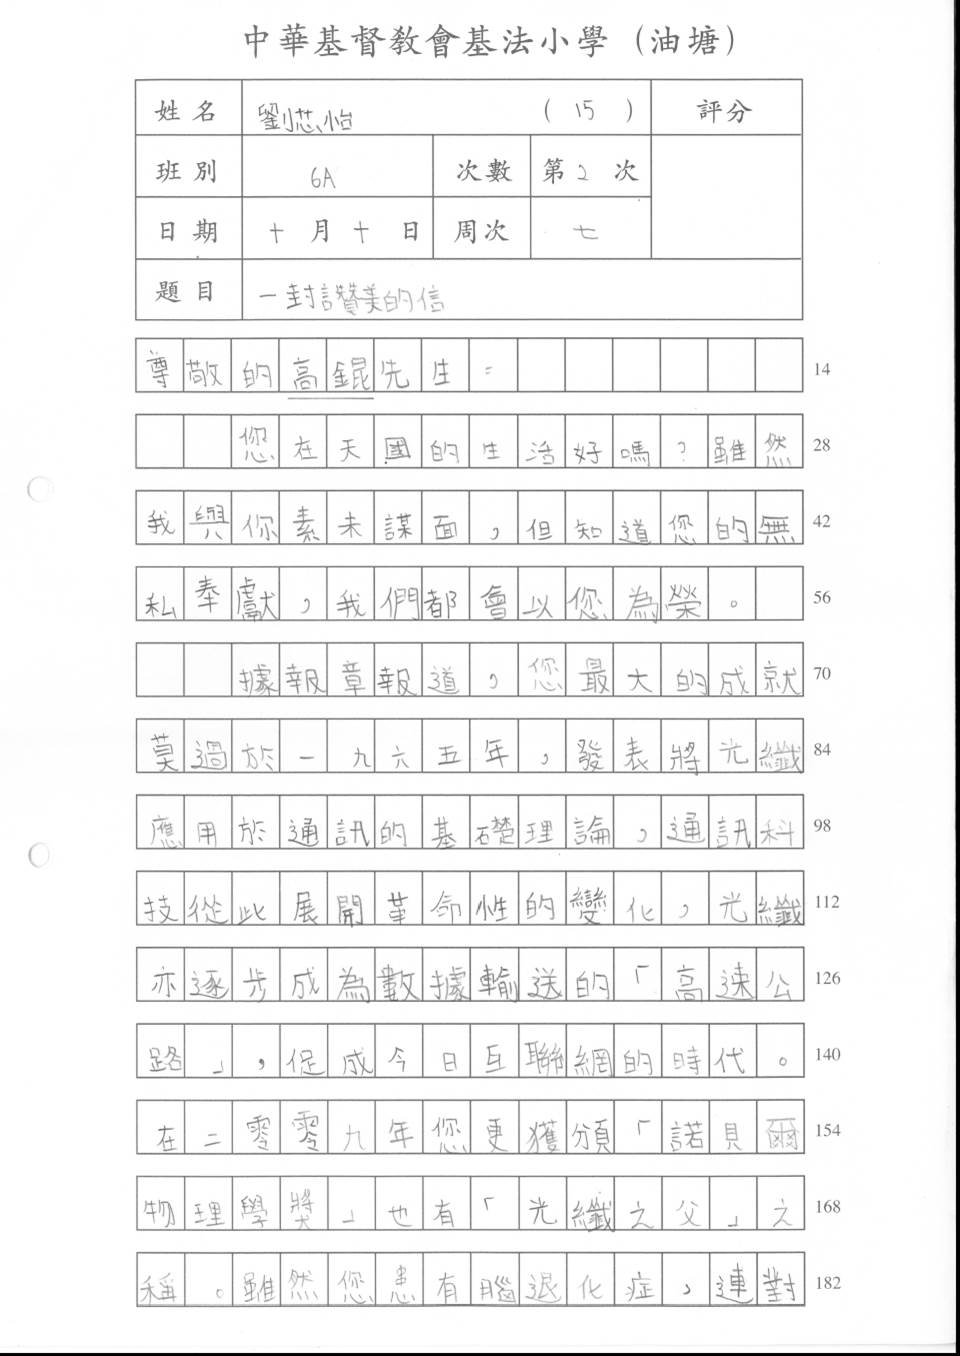 中華基督教會基法小學（油塘）
姓名 劉芯怡 （15） 評分
班別 6A 次數 第2次
日期 十月十日 周次 七
題目 一封讚美的信
尊敬的高錕先生： 14
您在天國的生活好嗎？雖然 28
我與你素未謀面，但知道您的無 42
私奉獻，我們都會以您為榮。 56
據報章報道，您最大的成就 70
莫過於一九六五年，發表將光纖 84
應用於通訊的基礎理論，通訊科 98
技從此展開革命性的變化，光纖 112
亦逐步成為數據輸送的「高速公 126
路」，促成今日互聯網的時代。 140
在二零零九年您更獲頒「諾貝爾 154
物理學獎」也有「光纖之父」之 168
稱。雖然您患有腦退化症，連對 182